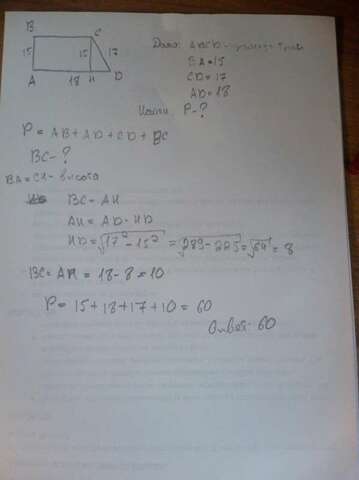 B C
15 15 17
A 18 H D
Дано: ABCD - прямоуг. трап
BA=15
CD=17
AD=18
Найти P-?
P = AB + AD + CD + BC
BC-?
BA = CH - высота
BC = AH
AH = AD - HD
HD = √17² - 15² = √289 - 225 = √64 = 8
BC = AH = 18 - 8 = 10
P = 15 + 18 + 17 + 10 = 60
Ответ: 60